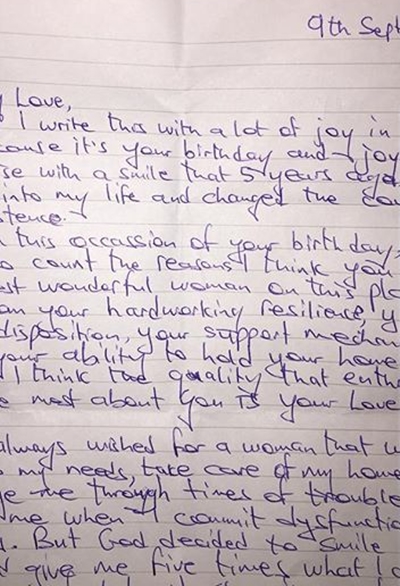 9th Sept
Love,
I write this with a lot of joy in
cause it's your birthday and joy
se with a smile that 5 years ago
into my life and changed the cou
stence.
this occassion of your birthday,
o count the reasons I think you
st wonderful woman on this pla
om your hardworking resilience, y
disposition, your support mechan
your ability to hold your home
I think the quality that enth
e most about you is your Love
always wished for a woman that w
my needs, take care of my home
me through times of trouble
me when I commit dysfunctio
. But God decided to smile
give me five times what I a